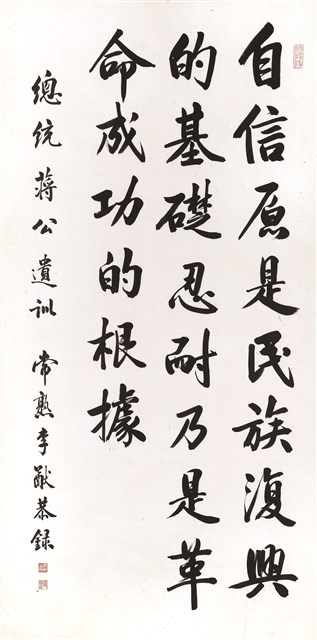 自信原是民族復興
的基礎忍耐乃是革
命成功的根據
總統蔣公遺訓 常熟李猷恭錄